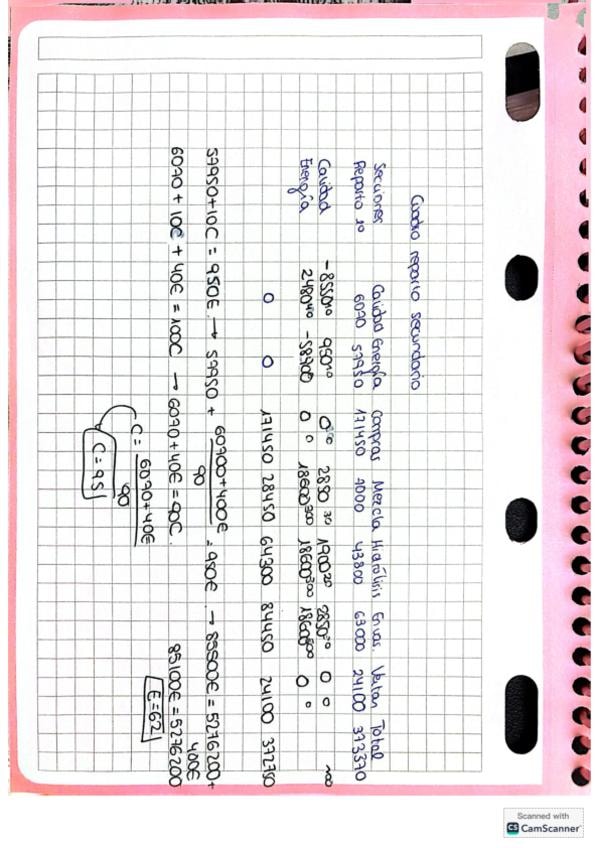 Cuadro reparto secundario
Secciones Calidad Energía Compras Mezcla Hidrólisis Envas. Ventas Total
Reparto 1º 6070 57950 171450 4000 43800 63000 24100 373370
Calidad -8550 90 950 10 0 2850 30 1900 20 2850 30 0 0 100
Energía 2480 40 -58900 0 0 18600 300 18600 300 18600 300 0 0
0 0 171450 28450 64300 84450 24100 372750
57950+10C = 950E. → 57950 + 60700+400E / 90 = 950E → 85500E = 5276200 + 400E
6070 + 10C + 40E = 100C → 6070+40E = 90C. 85100E = 5276200
C = 6070+40E / 90 E=62
C=95
Scanned with
CS CamScanner